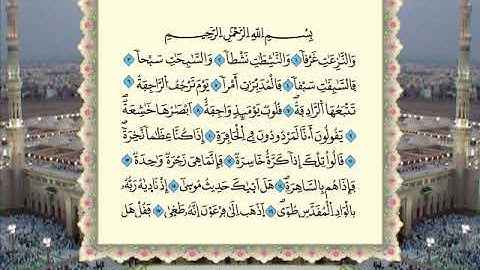 بِسْمِ اللّٰهِ الرَّحْمٰنِ الرَّحِيمِ
وَالنَّازِعَاتِ غَرْقًا ۱ وَالنَّاشِطَاتِ نَشْطًا ۲ وَالسَّابِحَاتِ سَبْحًا ۳
فَالسَّابِقَاتِ سَبْقًا ۴ فَالْمُدَبِّرَاتِ أَمْرًا ۵ يَوْمَ تَرْجُفُ الرَّاجِفَةُ ۶
تَتْبَعُهَا الرَّادِفَةُ ۷ قُلُوبٌ يَوْمَئِذٍ وَاجِفَةٌ ۸ أَبْصَارُهَا خَاشِعَةٌ
۹ يَقُولُونَ أَئِنَّا لَمَرْدُودُونَ فِي الْحَافِرَةِ ۱۰ إِذَا كُنَّا عِظَامًا نَخِرَةً
۱۱ قَالُوا تِلْكَ إِذًا كَرَّةٌ خَاسِرَةٌ ۱۲ فَإِنَّمَا هِيَ زَجْرَةٌ وَاحِدَةٌ ۱۳
فَإِذَا هُمْ بِالسَّاهِرَةِ ۱۴ هَلْ أَتٰيكَ حَدِيثُ مُوسٰى ۱۵ إِذْ نَادٰيهُ رَبُّهُ
بِالْوَادِ الْمُقَدَّسِ طُوًى ۱۶ اِذْهَبْ إِلٰى فِرْعَوْنَ إِنَّهُ طَغٰى ۱۷ فَقُلْ هَلْ